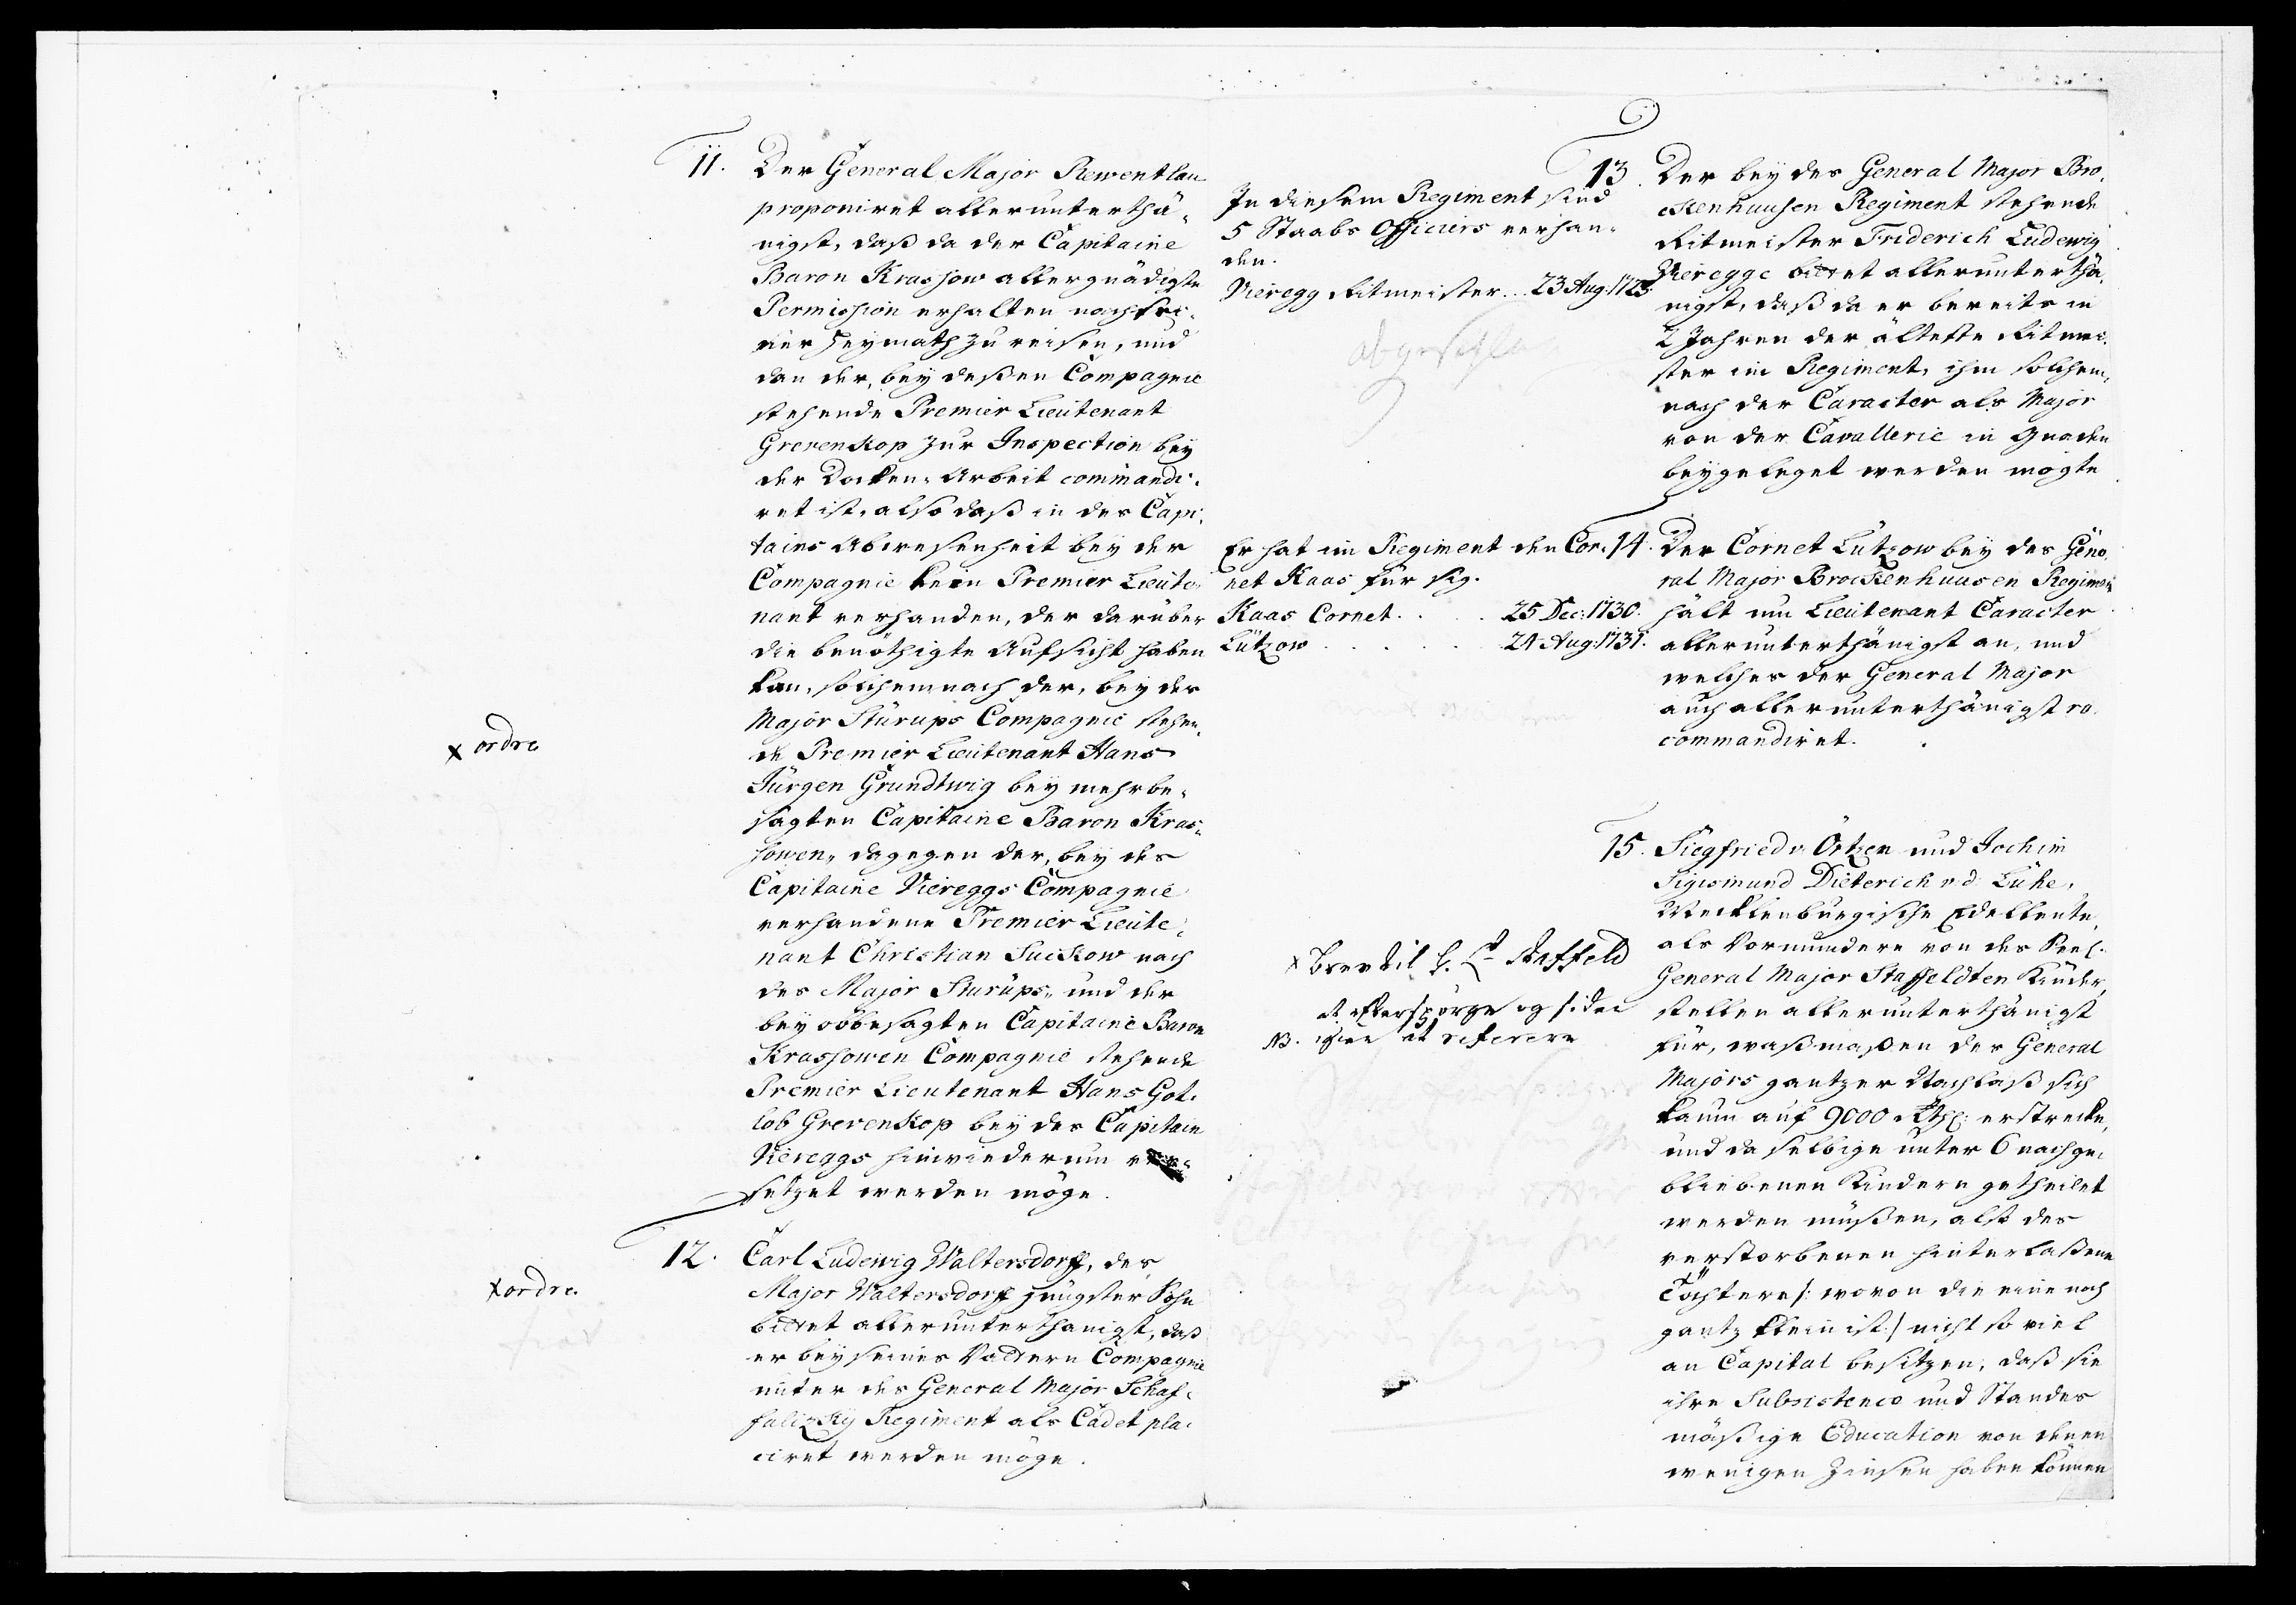 11. Der General Major Rewentlau
proponiret allerunterthä-
nigst, daß da der Capitaine
Baron Krassow allergnädigste
Permission erhalten nach sei-
ner Heymath zu reisen, und
dan der, bey deßen Compagnie
stehende Premier Lieutenant
Grevenkop zur Inspection bey
der Docken-Arbeit commandi-
ret ist, also daß in des Capi-
tains Abwesenheit bey der
Compagnie kein Premier Lieute-
nant verhanden, der darüber
die benöthigte Aufsicht haben
kan, solchemnach der, bey des
Major Stürups Compagnie stehen-
de Premier Lieutenant Hans
Jürgen Grundtwig bey mehrbe-
sagten Capitaine Baron Kras-
sowen, dagegen der, bey des
Capitaine Viereggs Compagnie
verhandene Premier Lieute-
nant Christian Suckow nach
des Major Stürups, und der
bey obbesagten Capitaine Baron
Krassowen Compagnie stehende
Premier Lieutenant Hans Got-
lob Grevenkop bey des Capitain
Viereggs hinwiederum ver-
setzet werden möge.
x ordre
12. Carl Ludewig Waltersdorff, des
Major Waltersdorff jüngster Sohn
bittet allerunterthänigst, daß
er bey seines Vattern Compagnie
unter des General Major Schaf-
falizky Regiment als Cadet pla-
ciret werden möge.
x ordre.
13. Der bey des General Major Bro-
ckenhuusen Regiment stehende
Ritmeister Friderich Ludewig
Vieregge bittet allerunterthä-
nigst, daß da er bereits in
2 Jahren der älteste Ritmei-
ster im Regiment, ihm solchem-
nach der Caracter als Major
von der Cavallerie in Gnaden
beygeleget werden mögte
In diesem Regiment sind
5 Staabs Officiers verhan-
den.
Vieregg Ritmeister... 23 Aug: 1723
abgeschla
14. Der Cornet Lützow bey des Gene-
ral Major Brockenhuusen Regiment
hält um Lieutenant Caracter
allerunterthänigst an, und
welches der General Major
auch allerunterthänigst re-
commandiret.
Er hat im Regiment den Cor-
net Kaas für sig.
Kaas Cornet.... 25 Dec: 1730.
Lützow...... 24 Aug: 1731.
15. Siegfried v. Örtzen und Jochim
Sigismund Dieterich v. d. Lühe,
Mecklenburgische Edelleute,
als Vormündere von des Seel.
General Major Staffeldten Kinder,
stellen allerunterthänigst
für, waßmaßen des General
Majors gantzer Nachlaß sich
kaum auf 9000 Rthl: erstrecke,
und da selbige unter 6 nachge-
bliebenen Kindern getheilet
werden müßen, alß des
verstorbenen hinterlaßene
Töchtere /: wovon die eine noch
gantz klein ist :/ nicht so viel
an Capital besitzen, daß sie
ihre Subsistence und Standes
mäßige Education von denen
wenigen Zinsen haben können
x Brev til G. Lt Staffeld
at efterspörge og siden
NB. igien at referere